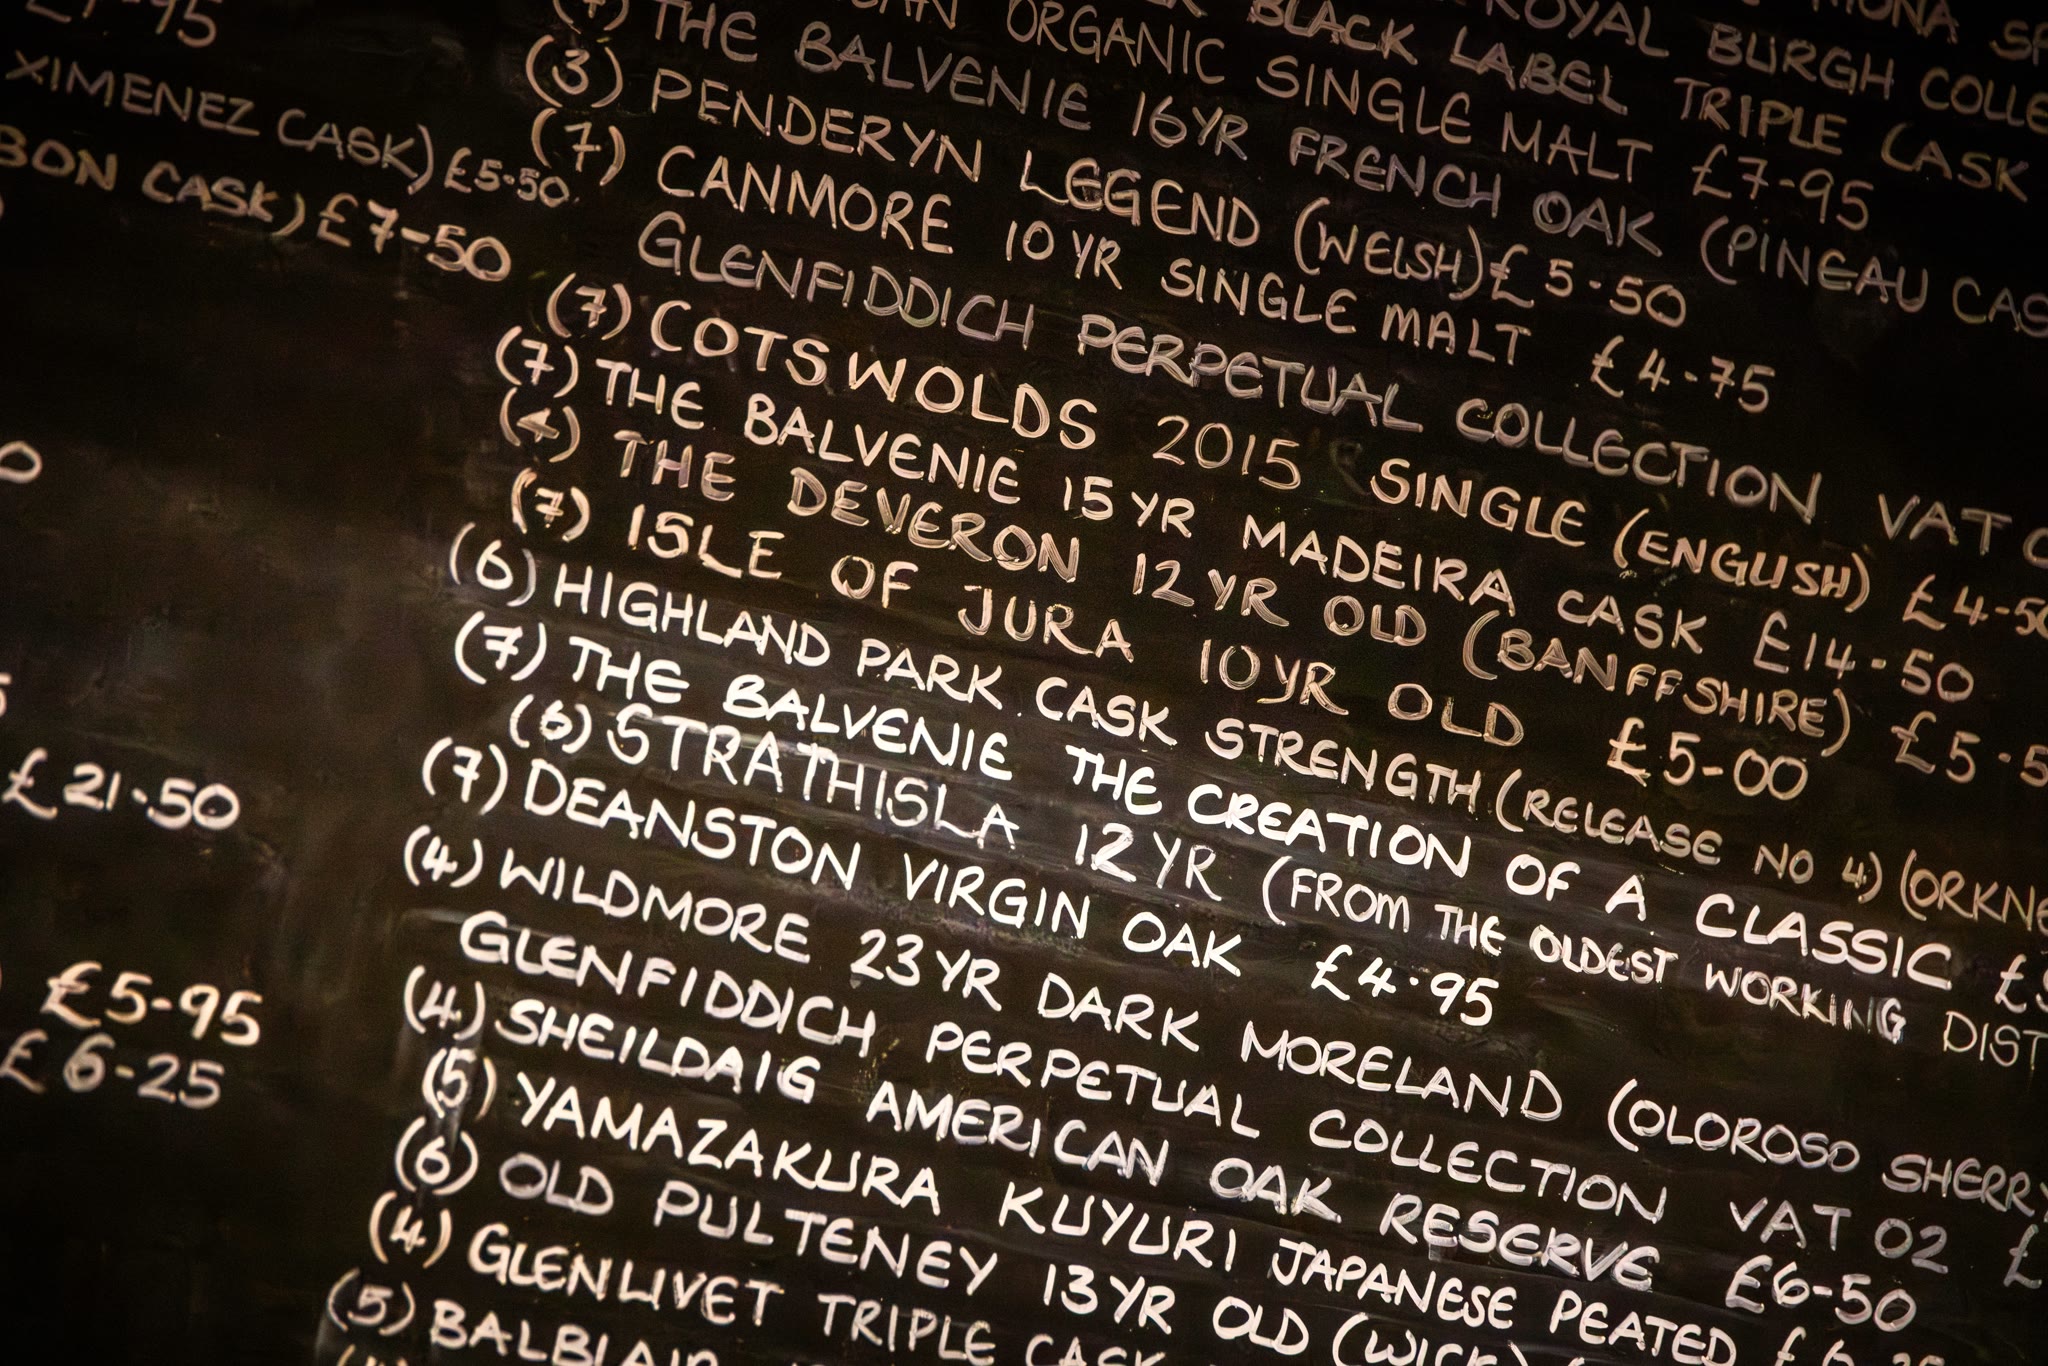 XIMENEZ CASK) £5-50
CASK) £7-50
£21-50
£5-95
£6-25
BLACK LABEL TRIPLE CASK
ROYAL BURGH
ORGANIC SINGLE MALT £7-95
THE BALVENIE 16YR FRENCH OAK (PINEAU
(3) PENDERYN LEGEND (WELSH) £5-50
(7) CANMORE 10YR SINGLE MALT £4-75
GLENFIDDICH PERPETUAL COLLECTION VAT
(7) COTSWOLDS 2015 SINGLE (ENGLISH) £4-50
(7) THE BALVENIE 15YR MADEIRA CASK £14-50
(4) THE DEVERON 12YR OLD (BANFFSHIRE)
(7) ISLE OF JURA 10YR OLD £5-00
(6) HIGHLAND PARK CASK STRENGTH (RELEASE NO 4)
(7) THE BALVENIE THE CREATION OF A CLASSIC
(6) STRATHISLA 12YR (FROM THE OLDEST WORKING
(7) DEANSTON VIRGIN OAK £4-95
(4) WILDMORE 23YR DARK MORELAND (OLOROSO SHERRY
GLENFIDDICH PERPETUAL COLLECTION VAT 02 £
(4) SHEILDAIG AMERICAN OAK RESERVE £6-50
(5) YAMAZAKURA KUYURI JAPANESE PEATED
(6) OLD PULTENEY 13YR OLD (WICK)
(4) GLENLIVET TRIPLE CASK
(5) BALBLAIR